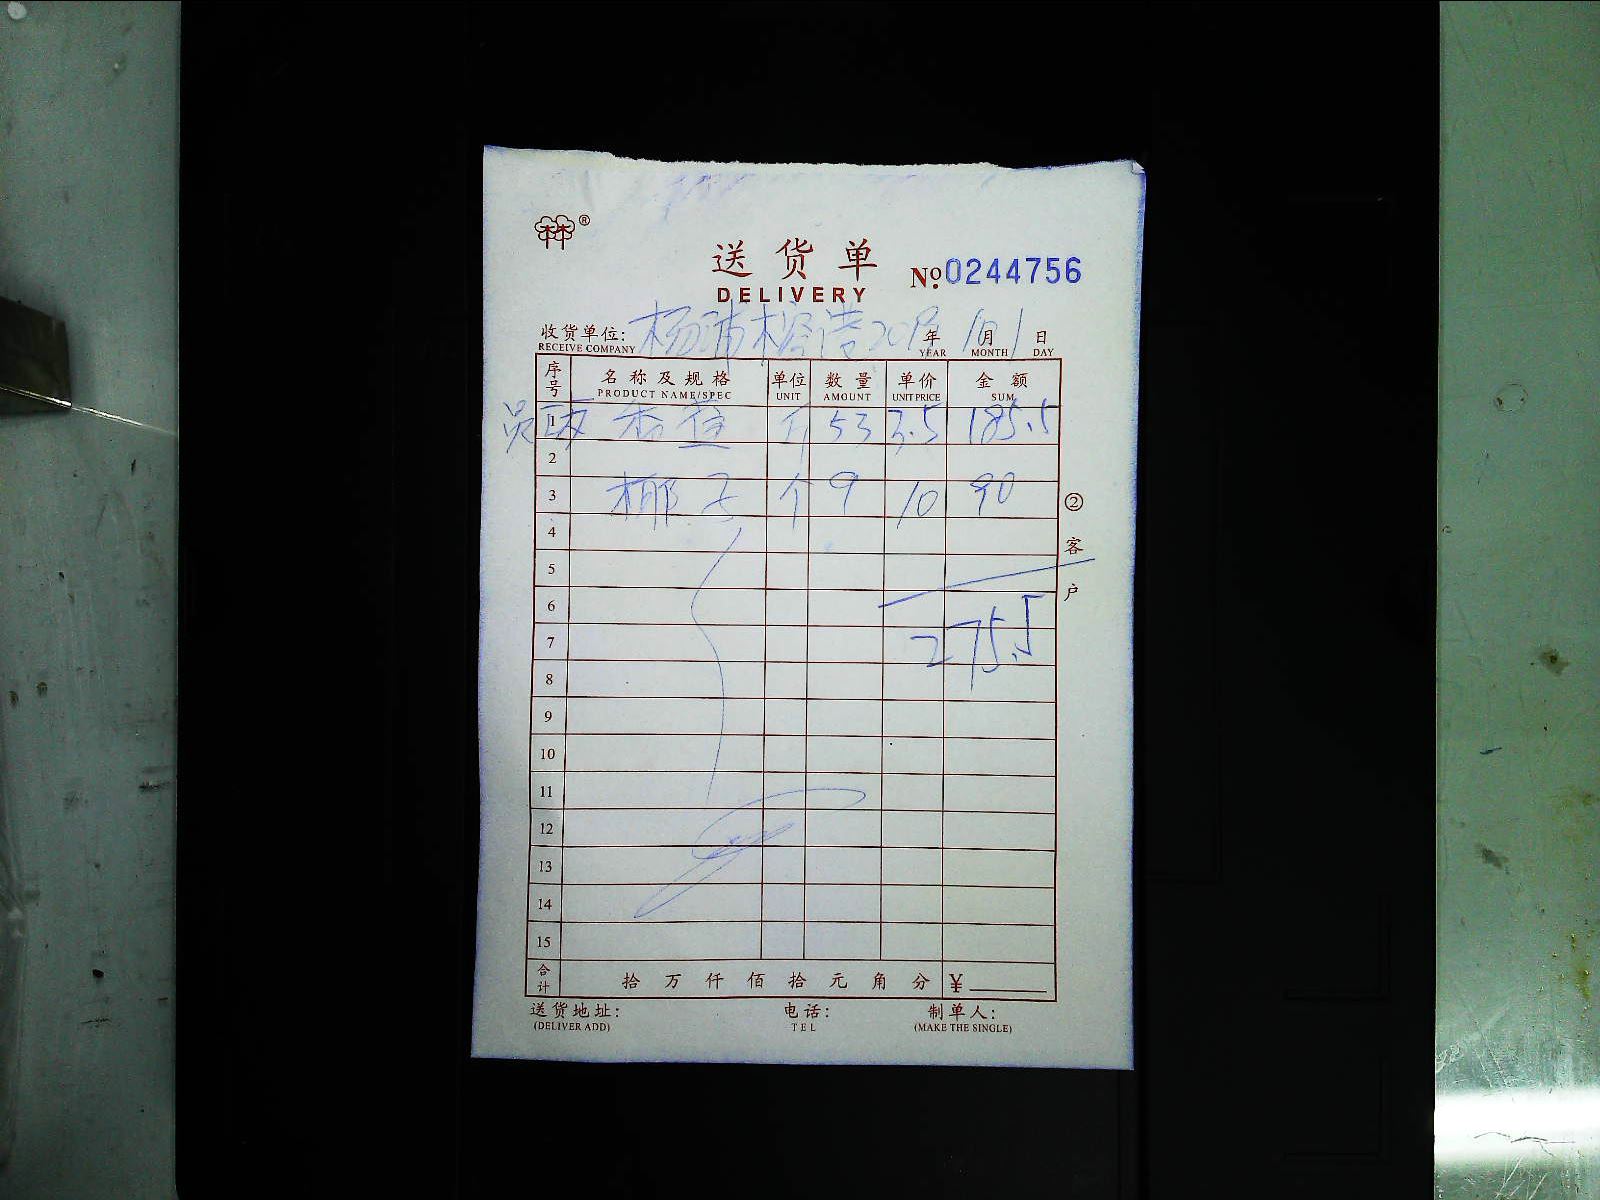 ®
送货单
DELIVERY
No. 0244756
收货单位: 杨 年 1月1日
RECEIVE COMPANY YEAR MONTH DAY
序号 名称及规格 单位 数量 单价 金额
PRODUCT NAME/SPEC UNIT AMOUNT UNIT PRICE SUM
员 1 香 斤 53 3.5 185.5
2
3 椰子 个 9 10 90
4
5
6
7 275.5
8
9
10
11
12
13
14
15
合计 拾 万 仟 佰 拾 元 角 分 ¥
送货地址: 电话: 制单人:
(DELIVER ADD) TEL (MAKE THE SINGLE)
②客户